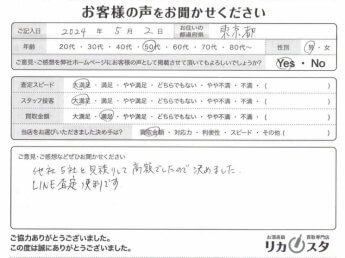 お客様の声をお聞かせください
ご記入日 2024年 5月 2日 お住いの都道府県 東京都
年齢 20代・30代・40代・50代・60代・70代・80代〜 性別 男・女
ご意見・ご感想を弊社ホームページにお客様の声として掲載させて頂いてもよろしいでしょうか? Yes・No
査定スピード 大満足・満足・やや満足・どちらでもない・やや不満・不満・( )
スタッフ接客 大満足・満足・やや満足・どちらでもない・やや不満・不満・( )
買取金額 大満足・満足・やや満足・どちらでもない・やや不満・不満・( )
当店をお選びいただきました決め手は? 買取金額・対応力・利便性・スピード・その他( )
ご意見・ご感想などぜひお聞かせください
他社5社と見積りして高額でしたので決めました。
LINE査定便利です
ご協力ありがとうございました。
この度は誠にありがとうございました。
お酒高額買取専門店
リカスタ